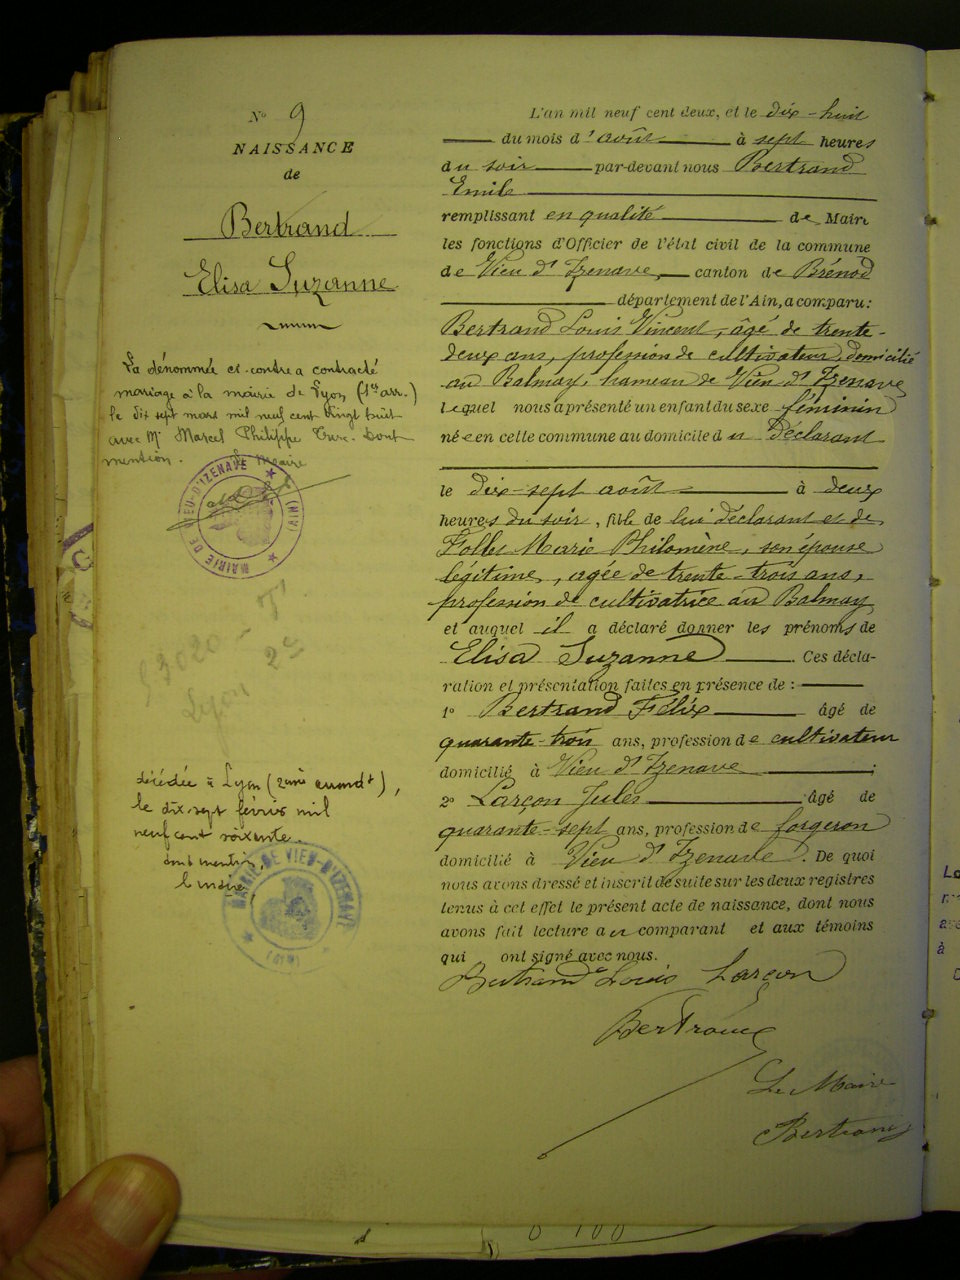 N° 9
NAISSANCE
de
Bertrand
Elisa Suzanne
La dénommée ci-contre a contracté
mariage à la mairie de Lyon (1er arr.)
le dix sept mars mil neuf cent vingt huit
avec Mr Marcel Philippe Dont
mention. Le maire
MAIRIE DE VIEU-D'IZENAVE (AIN)
Lyon 2e
décédée à Lyon (2ème arrondt),
le dix-sept février mil
neuf cent soixante.
dont mention,
le maire
MAIRIE DE VIEU-D'IZENAVE (AIN)
L'an mil neuf cent deux, et le dix-huit
du mois d'août à sept heures
du soir par-devant nous Bertrand
Emile
remplissant en qualité de Maire
les fonctions d'Officier de l'état civil de la commune
de Vieu d'Izenave, canton de Brénod
département de l'Ain, a comparu :
Bertrand Louis Vincent, âgé de trente-
deux ans, profession de cultivateur, domicilié
au Balmay, hameau de Vieu d'Izenave
lequel nous a présenté un enfant du sexe féminin
née en cette commune au domicile du déclarant
le dix-sept août à deux
heures du soir, fille de lui déclarant et de
Follet Marie Philomène, son épouse
légitime, agée de trente-trois ans,
profession de cultivatrice au Balmay
et auquel il a déclaré donner les prénoms de
Elisa Suzanne. Ces décla-
ration et présentation faites en présence de :
1° Bertrand Félix âgé de
quarante-trois ans, profession de cultivateur
domicilié à Vieu d'Izenave ;
2° Larçon Jules âgé de
quarante-sept ans, profession de forgeron
domicilié à Vieu d'Izenave. De quoi
nous avons dressé et inscrit de suite sur les deux registres
tenus à cet effet le présent acte de naissance, dont nous
avons fait lecture au comparant et aux témoins
qui ont signé avec nous.
Bertrand Louis Larçon
Bertrand
Le Maire
Bertrand